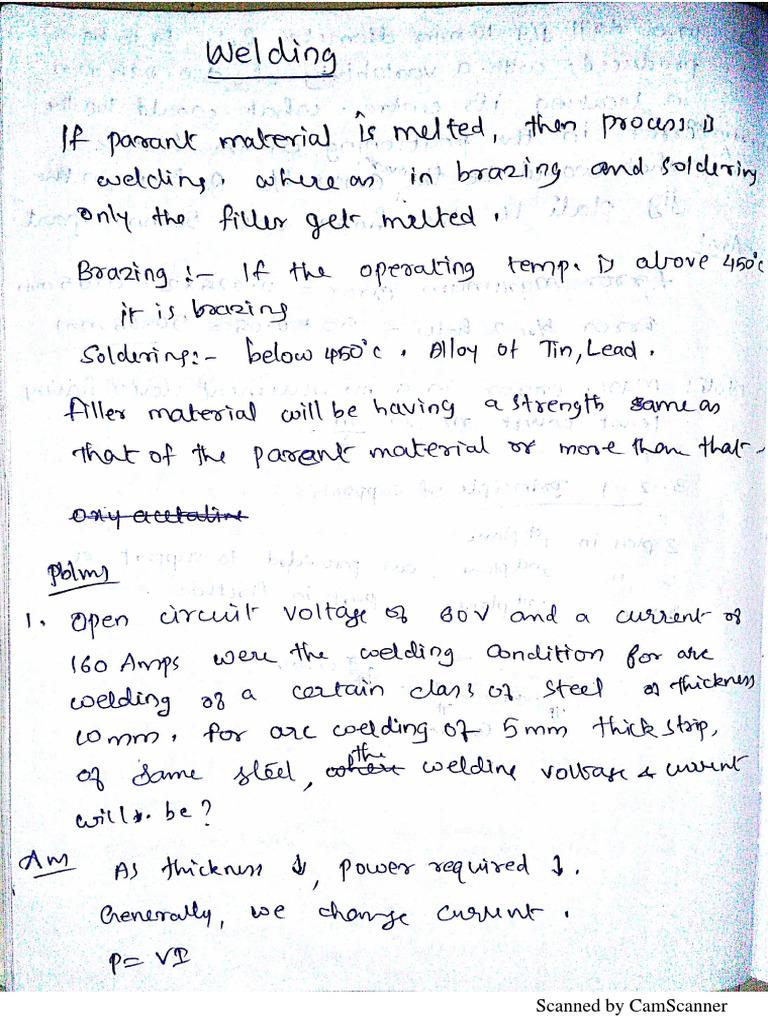 Welding
If parant material is melted, then process is
welding. where as in brazing and soldering
only the filler get melted.
Brazing :- If the operating temp. is above 450°C
it is brazing
Soldering:- below 450°C. Alloy of Tin, Lead.
filler material will be having a strength same as
that of the parent material or more than that.
oxy acetaline
Pblms
1. Open circuit voltage of 60V and a current of
160 Amps were the welding condition for arc
welding of a certain class of steel of thickness
10mm. for arc welding of 5mm thick strip,
of same steel, the welding voltage & current
will be?
Ans As thickness ↓, power required ↓.
Generally, we change current.
P = VI
Scanned by CamScanner